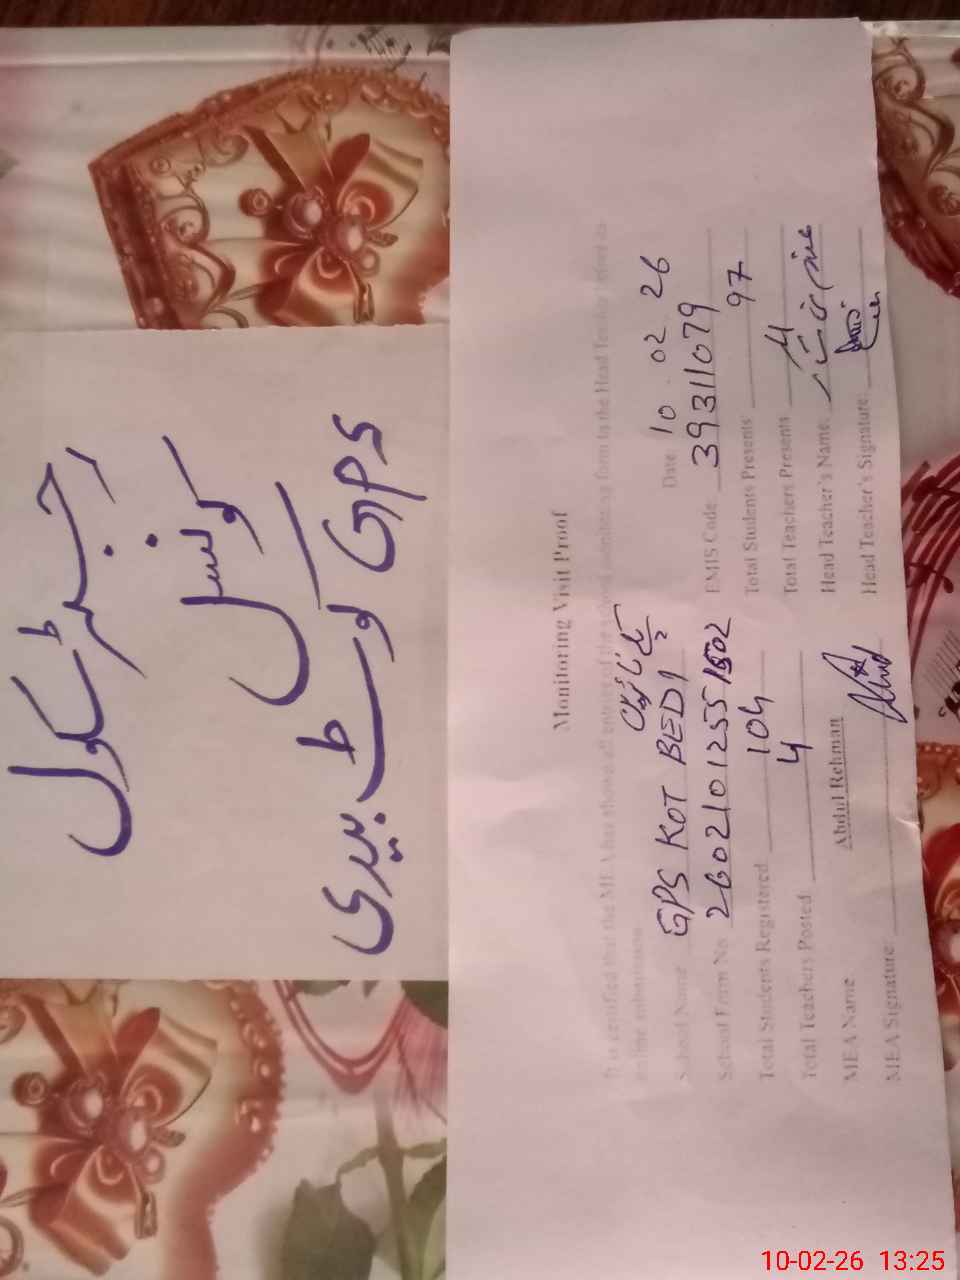 رجسٹر سکول
کونسل
GPS کوٹ بیدی
Monitoring Visit Proof
It is certified that the MEA has shown all entries of the school monitoring form to the Head Teacher prior to
online submission.
School Name GPS KOT BEDI Date 10.02.26
School Form No 2602101255 1502 EMIS Code 39311079
Total Students Registered 104 Total Students Presents 97
Total Teachers Posted 4 Total Teachers Presents 4
MEA Name Abdul Rehman Head Teacher's Name
MEA Signature: Head Teacher's Signature:
10-02-26 13:25